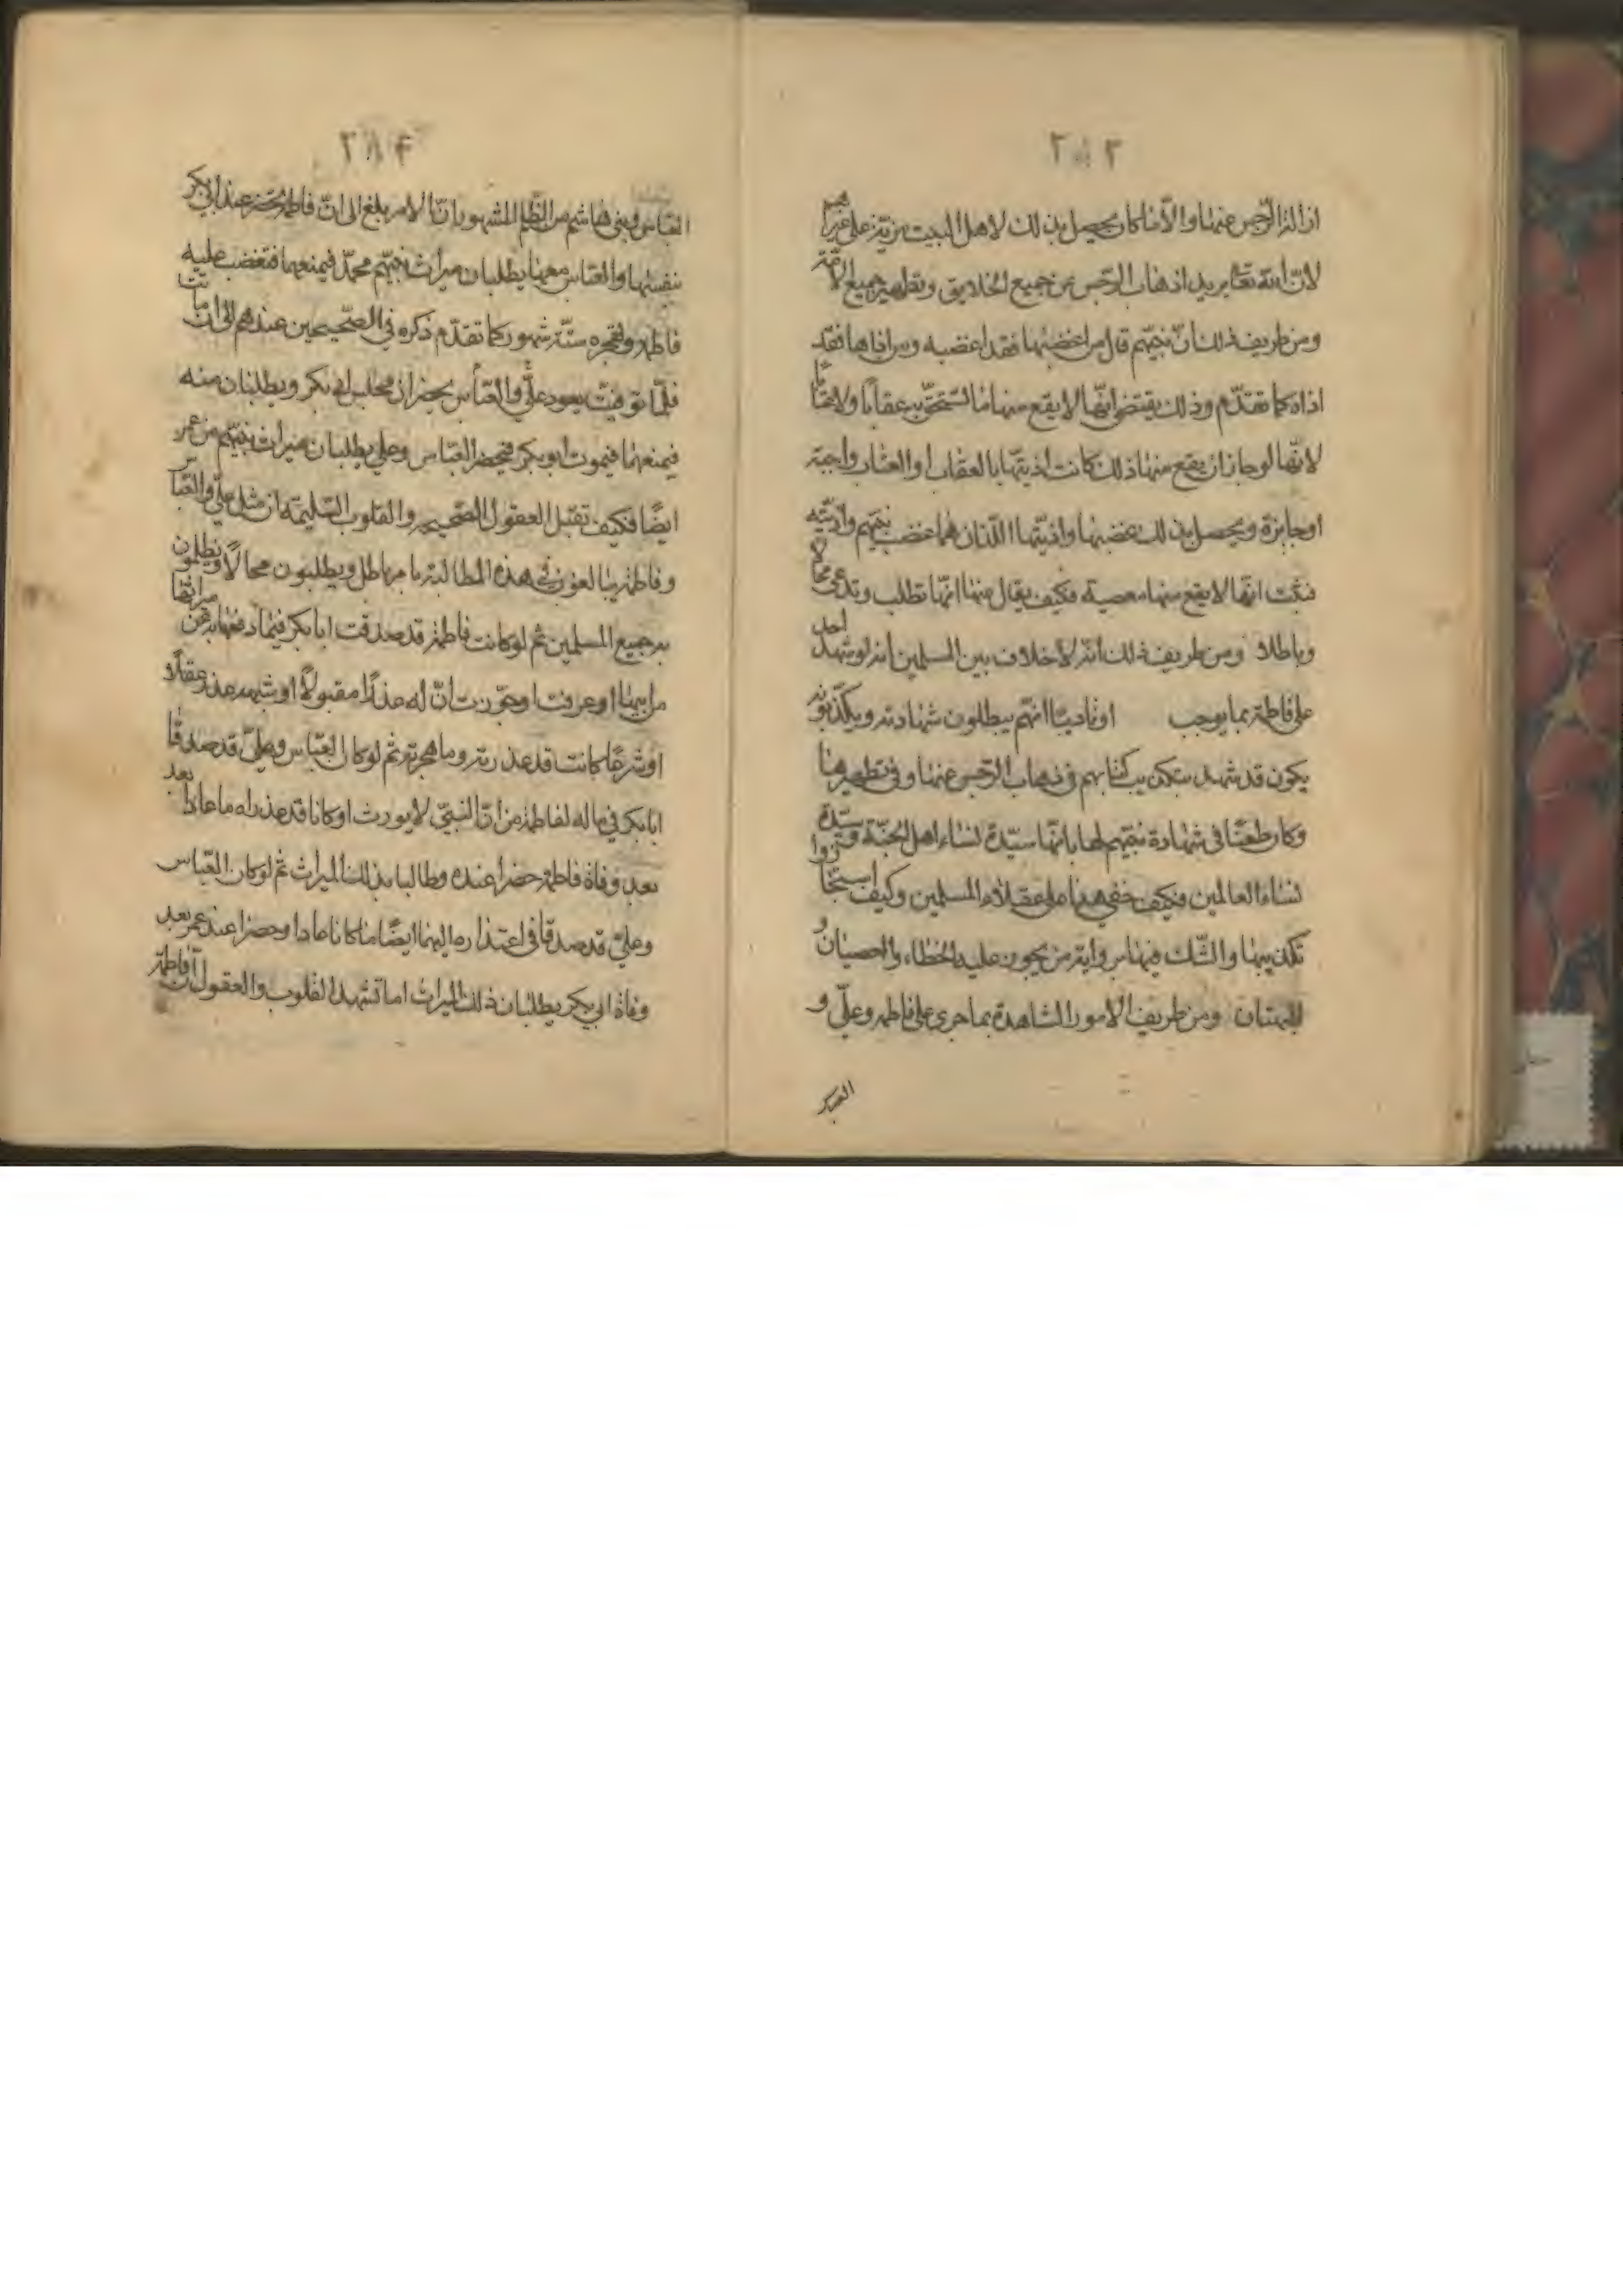 ٢٨٣
ازالة الرّجس عنها والّا فما كان يحصل بذلك لاهل البيت مزيّة على غيرهم
لانّ الله تعالى يريد اذهاب الرّجس عن جميع الخلايق وتطهير جميع الامّة
ومن طريف ذلك انّ نبيّهم قال من اغضبها فقد اغضبه ومن اذاها فقد
اذاه كما تقدّم وذلك يقتضى انّها لا يقع منها ما تستحقّ به عقابًا ولا عتابًا
لانّها لو جاز ان يقع منها ذلك كانت اذيتها بالعقاب او العتاب واجبة
او جايزة ويحصل بذلك غضبها واذيّتها اللّذان هما غضب نبيّهم واذيّته
فثبت انّها لا يقع منها معصية فكيف يقال عنها انّها تطلب وتدّعى محالا
وباطلا ومن طريف ذلك انّه لا خلاف بين المسلمين انه لو شهد احد
على فاطمة بما يوجب او تاديبًا انّهم يبطلون شهادته ويكذّبونه
يكون قد شهد بتكذيب كتابهم فى ذهاب الرّجس عنها وفى تطهيرها
وكان طعنًا فى شهادة نبيّهم لها بانّها سيّدة نساء اهل الجنّة وسيّدة
نساء العالمين فكيف خفى هذا على عقلاء المسلمين وكيف استجازوا
تكذيبها والشّك فيها من رواية من يجوز عليه الخطاء والعصيان و
البهتان ومن طريف الامور الشاهدة بما جرى على فاطمة وعلىّ و
العباس
٢٨٤
العبّاس وبنى هاشم من الظّلم المشهور انّ الامر بلغ الى انّ فاطمة تحضر عند ابى بكر
بنفسها والعبّاس معها يطلبان ميراث نبيّهم محمّد فيمنعهما فتغضب عليه
فاطمة وتهجره ستّة شهور كما تقدّم ذكره فى الصّحيحين عندهم الى ان ماتت
فلمّا توفّيت يعود علىّ والعبّاس يحضران مجلس ابى بكر ويطلبان منه
فيمنعهما فيموت ابو بكر فيحضر العبّاس وعلى يطلبان ميراث نبيّهم من عمر
ايضًا فكيف تقبل العقول الصّحيحه والقلوب السّليمه ان مثل علىّ والعبّاس
وفاطمة يبالغون فى هذه المطالبة بامر باطل ويطلبون محالًا ويظلمون
به جميع المسلمين ثم لو كانت فاطمة قد صدقت ابا بكر فيما دفعها به عن ميراثها
من ابيها او عرفت او جوّزت انّ له عذرًا مقبولًا او شبهه عذر عقلًا
او شرعًا كانت قد عذرته وما هجرته ثم لو كان العبّاس وعلىّ قد صدقا
ابا بكر فى ما له لفاطمة من انّ النبىّ لا يورث او كانا قد عذراه ما عادا بعد
بعد وفاة فاطمة حضرا عنده وطالبا بذلك الميراث ثم لو كان العبّاس
وعلىّ قد صدقا فى اعتذاره اليهما ايضًا ما كانا عادا وحضرا عند عمر بعد
وفاة ابى بكر يطلبان ذلك الميراث اما تشهد القلوب والعقول انّ فاطمة